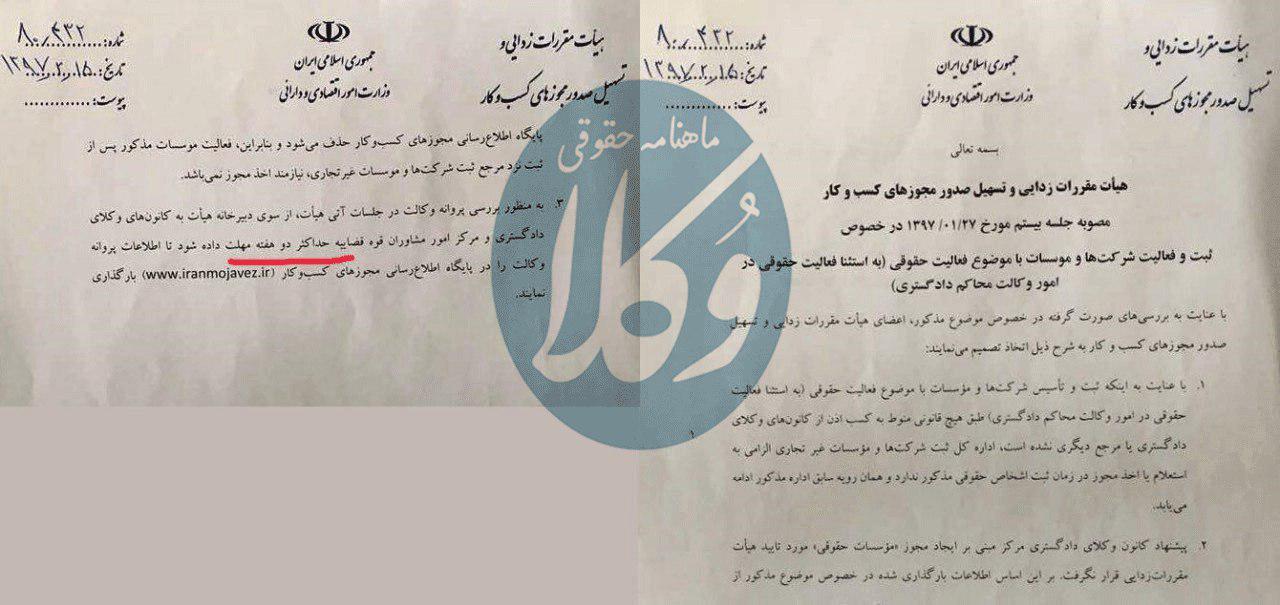 هیأت مقررات زدایی و
تسهیل صدور مجوزهای کسب و کار
جمهوری اسلامی ایران
وزارت امور اقتصادی و دارائی
شماره: ۸۰/۴۳۲
تاریخ: ۱۳۹۷/۰۲/۱۵
پیوست: .............
بسمه تعالی
هیأت مقررات زدایی و تسهیل صدور مجوزهای کسب و کار
مصوبه جلسه بیستم مورخ ۱۳۹۷/۰۱/۲۷ در خصوص
ثبت و فعالیت شرکت‌ها و موسسات با موضوع فعالیت حقوقی (به استثنا فعالیت حقوقی در
امور وکالت محاکم دادگستری)
با عنایت به بررسی‌های صورت گرفته در خصوص موضوع مذکور، اعضای هیأت مقررات زدایی و تسهیل
صدور مجوزهای کسب و کار به شرح ذیل اتخاذ تصمیم می‌نمایند:
۱. با عنایت به اینکه ثبت و تأسیس شرکت‌ها و مؤسسات با موضوع فعالیت حقوقی (به استثنا فعالیت
حقوقی در امور وکالت محاکم دادگستری) طبق هیچ قانونی منوط به کسب اذن از کانون‌های وکلای
دادگستری یا مرجع دیگری نشده است، اداره کل ثبت شرکت‌ها و مؤسسات غیر تجاری الزامی به
استعلام یا اخذ مجوز در زمان ثبت اشخاص حقوقی مذکور ندارد و همان رویه سابق اداره مذکور ادامه
می‌یابد.
۲. پیشنهاد کانون وکلای دادگستری مرکز مبنی بر ایجاد مجوز «مؤسسات حقوقی» مورد تایید هیأت
مقررات‌زدایی قرار نگرفت. بر این اساس اطلاعات بارگذاری شده در خصوص موضوع مذکور از
۱
هیأت مقررات زدایی و
تسهیل صدور مجوزهای کسب و کار
جمهوری اسلامی ایران
وزارت امور اقتصادی و دارائی
شماره: ۸۰/۴۳۲
تاریخ: ۱۳۹۷/۰۲/۱۵
پیوست: .............
پایگاه اطلاع‌رسانی مجوزهای کسب‌وکار حذف می‌شود و بنابراین، فعالیت موسسات مذکور پس از
ثبت نزد مرجع ثبت شرکت‌ها و موسسات غیرتجاری، نیازمند اخذ مجوز نمی‌باشد.
۳. به منظور بررسی پروانه وکالت در جلسات آتی هیأت، از سوی دبیرخانه هیأت به کانون‌های وکلای
دادگستری و مرکز امور مشاوران قوه قضاییه حداکثر دو هفته مهلت داده شود تا اطلاعات پروانه
وکالت را در پایگاه اطلاع‌رسانی مجوزهای کسب‌وکار (www.iranmojavez.ir) بارگذاری
نمایند.
ماهنامه حقوقی
وکلا